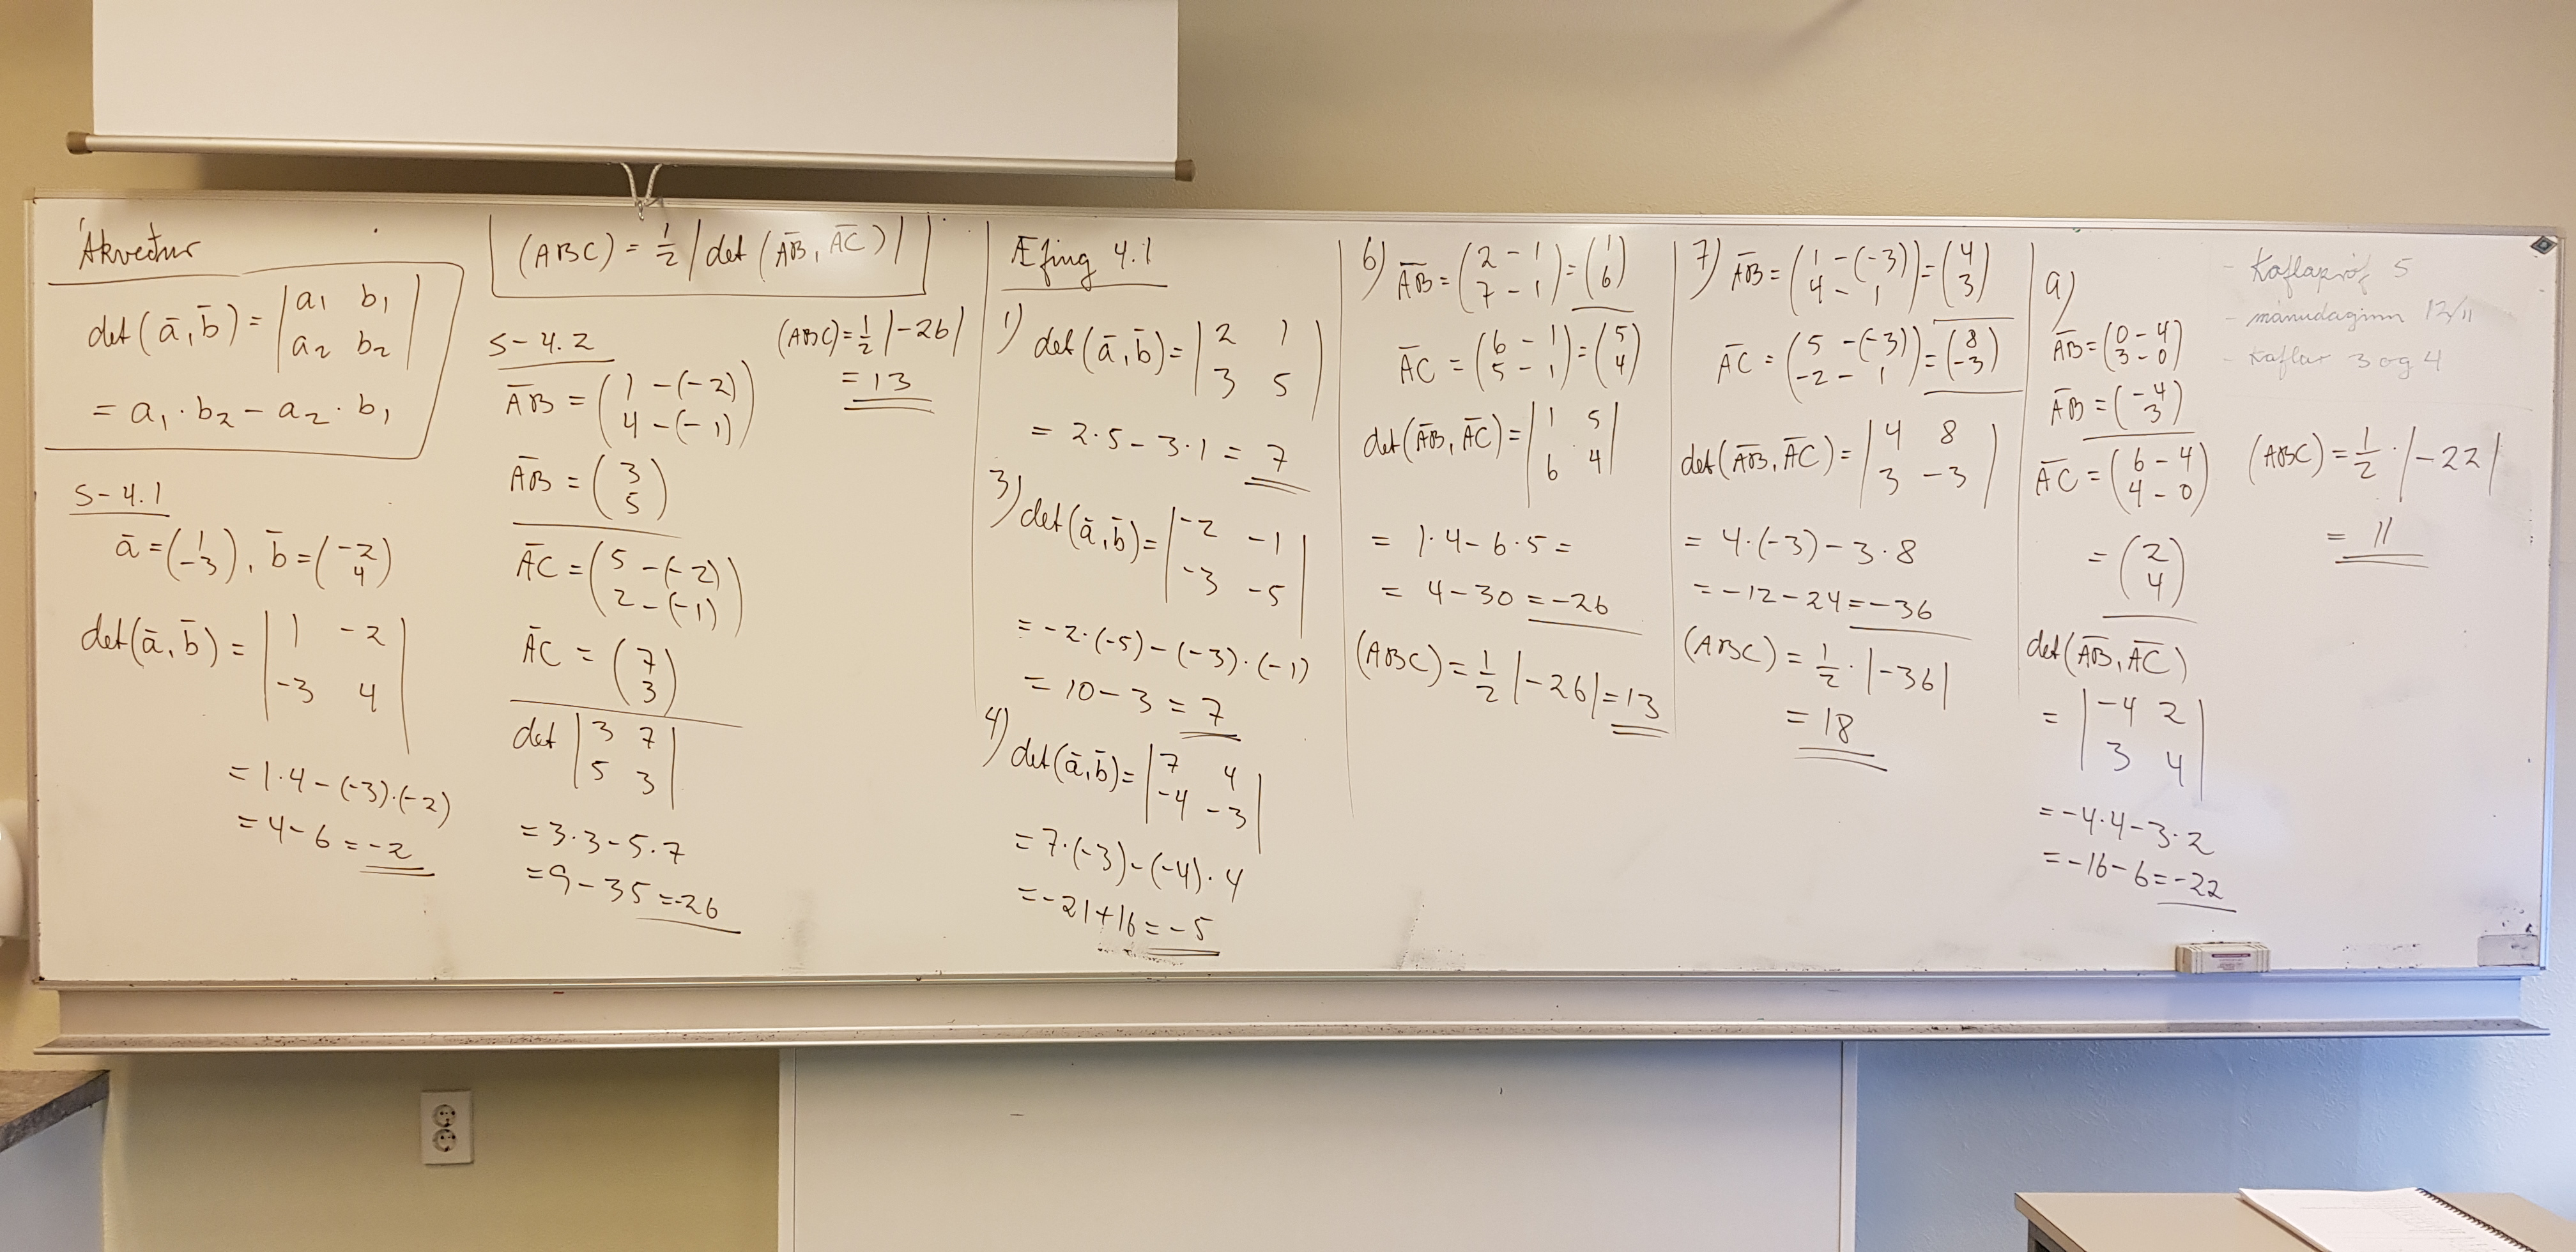 Ákveður
det(ā, b̄) = |a₁ b₁|
|a₂ b₂|
= a₁ · b₂ − a₂ · b₁
S-4.1
ā = (1 −3), b̄ = (−2 4)
det(ā, b̄) = |1 −2|
|−3 4|
= 1·4 − (−3)·(−2)
= 4 − 6 = −2
(ABC) = 1/2 |det(AB, AC)|
S-4.2
AB = (1 − (−2)
4 − (−1))
AB = (3
5)
AC = (5 − (−2)
2 − (−1))
AC = (7
3)
det |3 7|
|5 3|
= 3·3 − 5·7
= 9 − 35 = −26
(ABC) = 1/2 |−26|
= 13
Æfing 4.1
1) det(ā, b̄) = |2 1|
|3 5|
= 2·5 − 3·1 = 7
3) det(ā, b̄) = |−2 −1|
|−3 −5|
= −2·(−5) − (−3)·(−1)
= 10 − 3 = 7
4) det(ā, b̄) = |7 4|
|−4 −3|
= 7·(−3) − (−4)·4
= −21 + 16 = −5
6) AB = (2 − 1
7 − 1) = (1
6)
AC = (6 − 1
5 − 1) = (5
4)
det(AB, AC) = |1 5|
|6 4|
= 1·4 − 6·5 =
= 4 − 30 = −26
(ABC) = 1/2 |−26| = 13
7) AB = (1 − (−3)
4 − 1) = (4
3)
AC = (5 − (−3)
−2 − 1) = (8
−3)
det(AB, AC) = |4 8|
|3 −3|
= 4·(−3) − 3·8
= −12 − 24 = −36
(ABC) = 1/2 · |−36|
= 18
a)
AB = (0 − 4
3 − 0)
AB = (−4
3)
AC = (6 − 4
4 − 0)
= (2
4)
det(AB, AC)
= |−4 2|
|3 4|
= −4·4 − 3·2
= −16 − 6 = −22
- Kaflapróf 5
- mánudaginn 12/11
- kaflar 3 og 4
(ABC) = 1/2 · |−22|
= 11